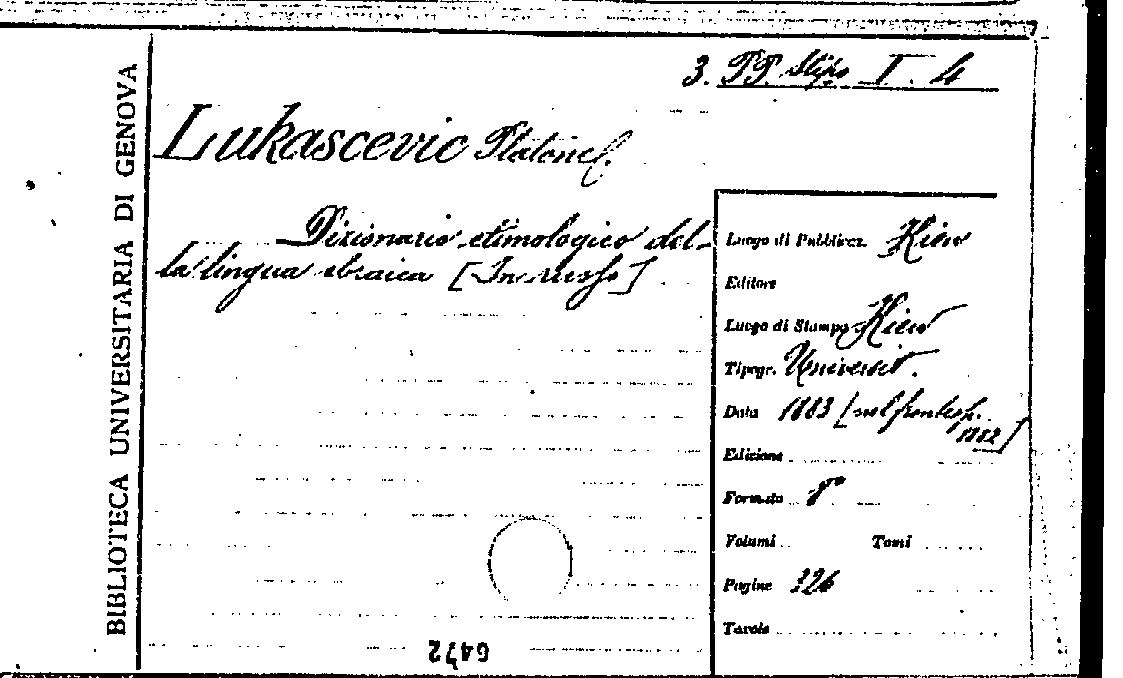 BIBLIOTECA UNIVERSITARIA DI GENOVA
3. PP. I. 4
Lukascevic Platone
Dizionario etimologico del-
la lingua ebraica [In russo]
Luogo di Pubblicaz. Kiew
Editore
Luogo di Stampa Kiew
Tipogr. Universit.
Data 1883 [nel frontesp.
1882]
Edizione
Formato 8°
Volumi Tomi
Pagine 326
Tavole
6472